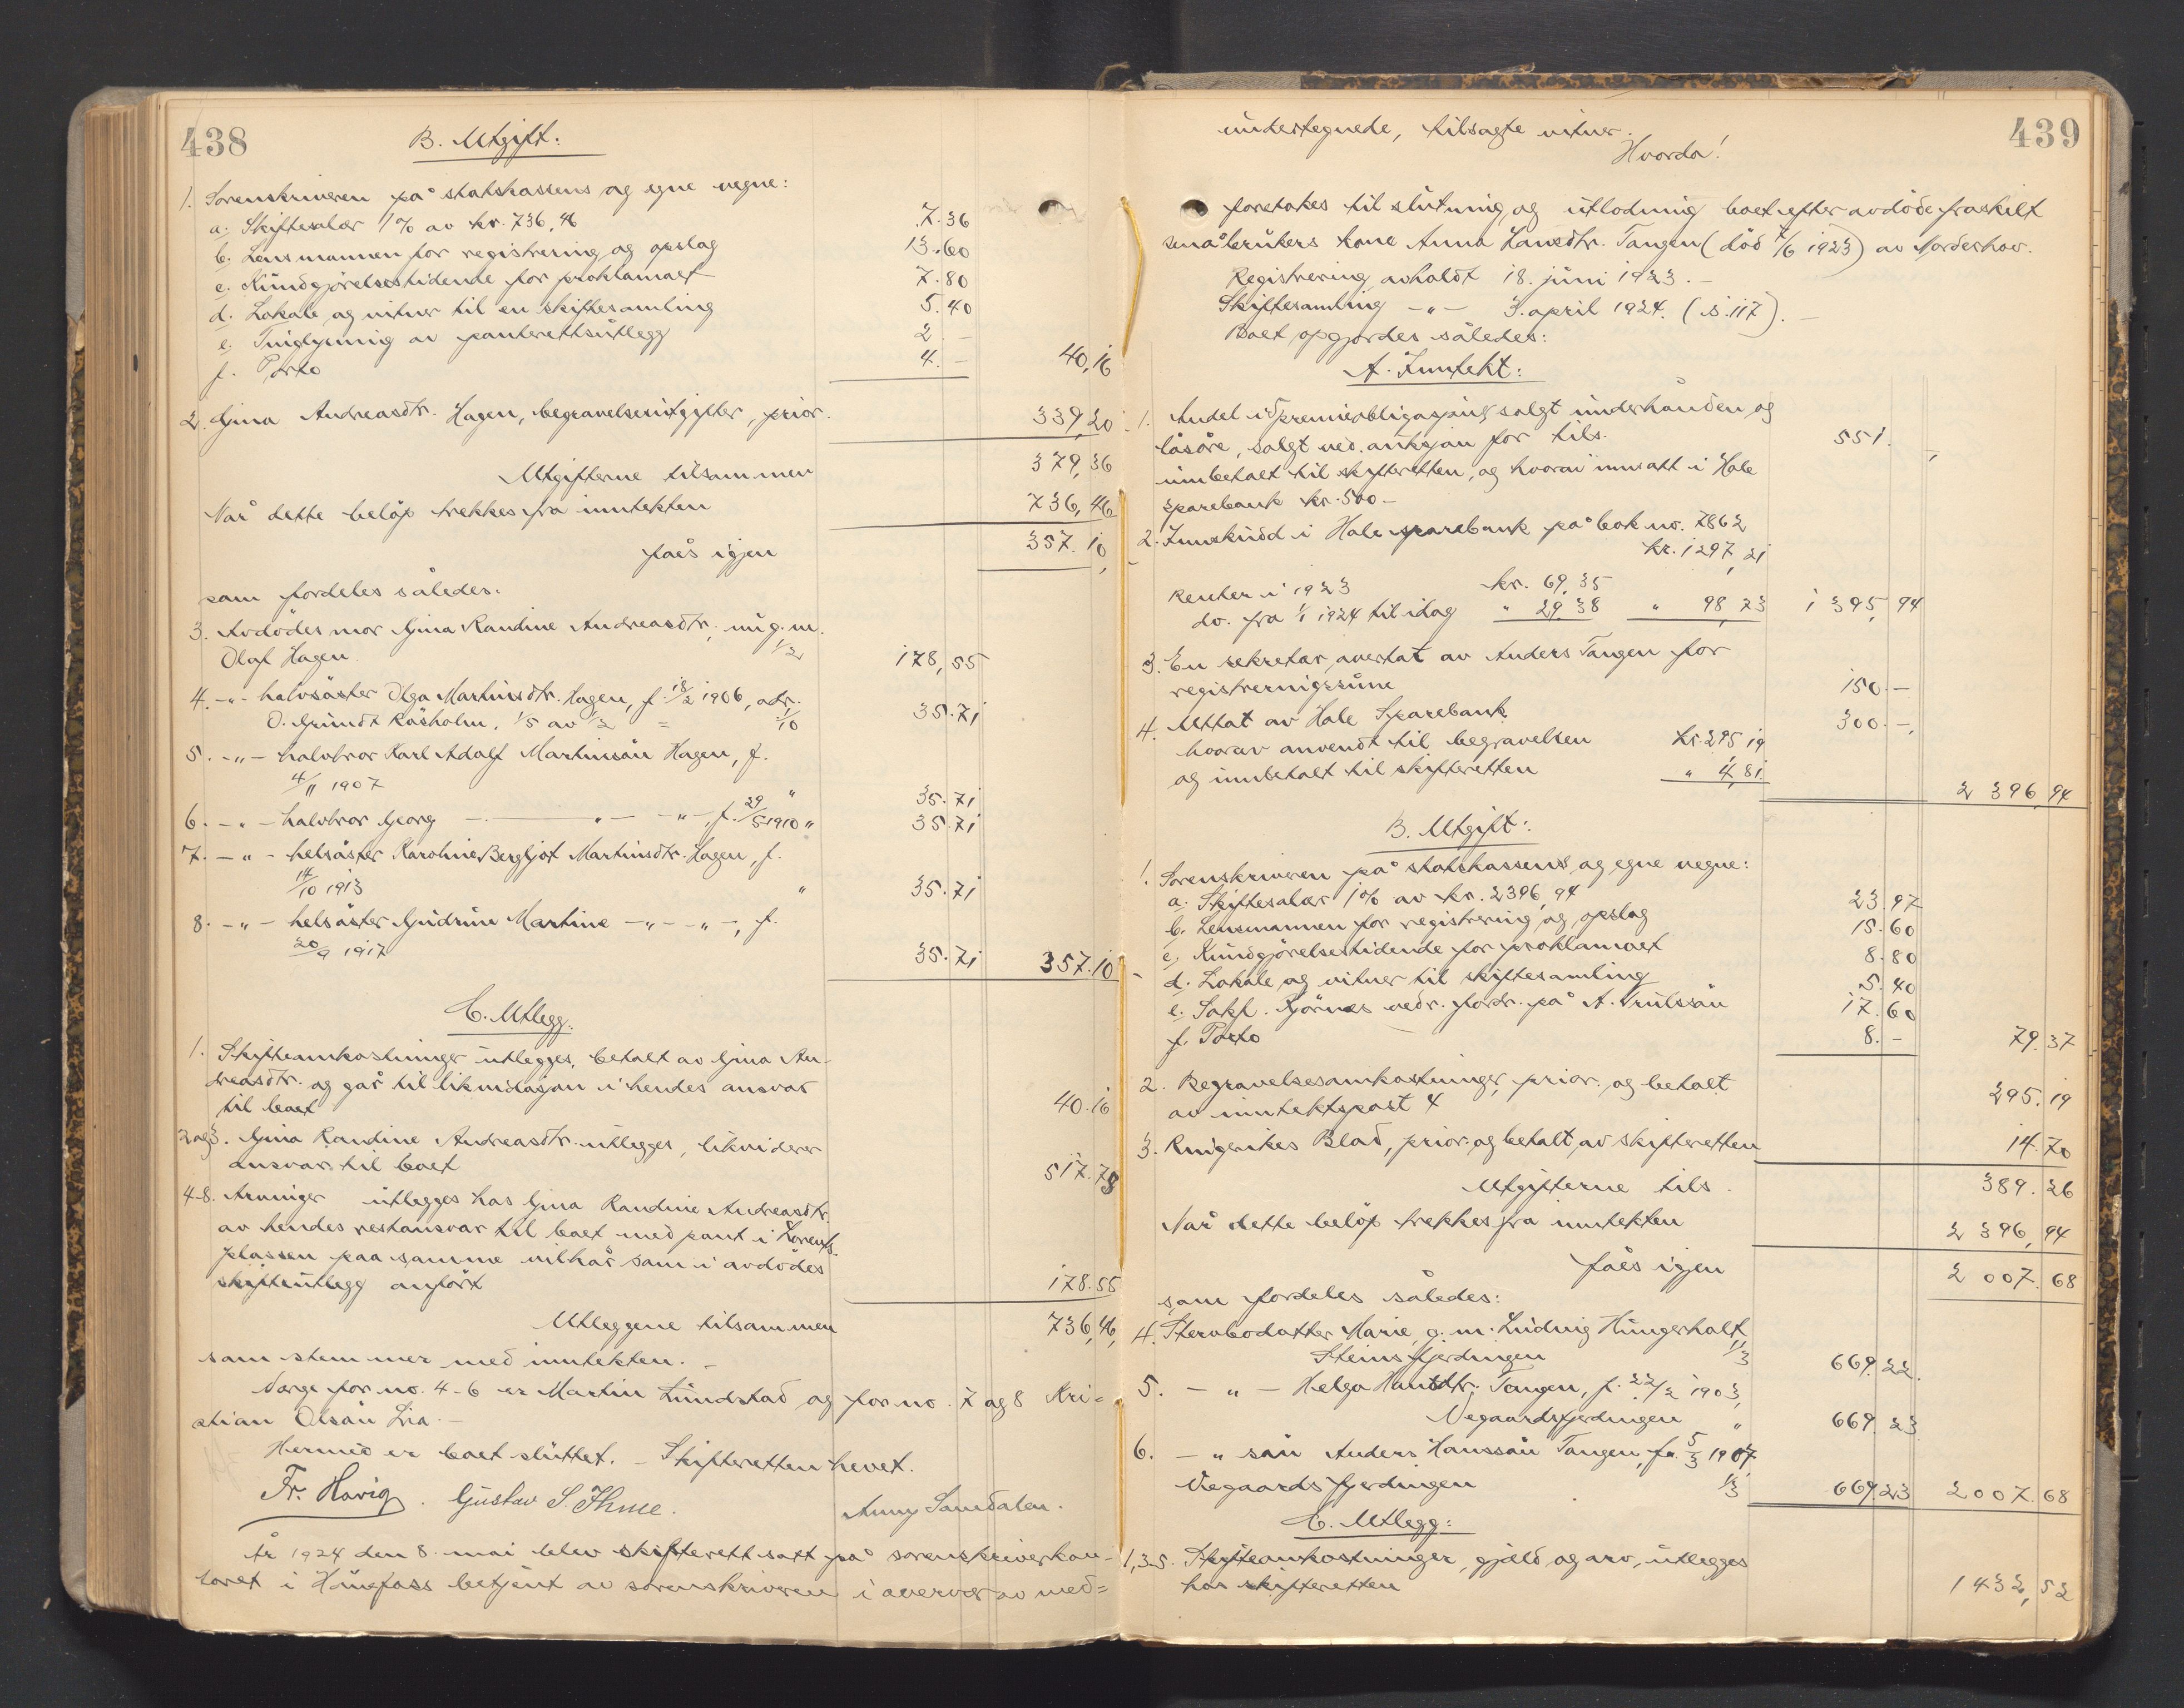 438
B. Utgift:
1. Sorenskriveren på statskassens og egne vegne:
a. Skiftesalær 1% av kr. 736,46 7.36
b. Lensmannen for registrering og opslag 13.60
c. Kundgjørelsestidende for proklamaet 7.80
d. Lokale og vitner til en skiftesamling 5.40
e. Tinglysning av panterettsutlegg 2.-
f. Porto 4.- 40,16
2. Gina Andreasdtr. Hagen, begravelsesutgifter, prior. 339,20
Utgifterne tilsammen 379,36
Når dette beløp trekkes fra inntekten 736,46
fåes igjen 357.10
som fordeles således:
3. Avdødes mor Gina Randine Andreasdtr., nu g.m.
Olaf Hagen 1/2 178,55
4. -"- halvsøster Olga Martinsdtr. Hagen, f. 18/2 1906, adr.
O. Grundt Råsholm, 1/5 av 1/2 = 1/10 35.71
5. -"- halvbror Karl Adolf Martinsøn Hagen, f.
4/11 1907 " 35.71
6. -"- halvbror Georg -"- -"-, f. 29/5 1910 " 35.71
7. -"- helsøster Karoline Bergljot Martinsdtr. Hagen, f.
14/10 1913 " 35.71
8. -"- helsøster Gudrun Martine -"- -"-, f.
20/9 1917 35.71 357.10
C. Utlegg.
1. Skifteomkostninger utlegges, betalt av Gina An-
dreasdtr. og går til likvidasjon i hendes ansvar
til boet 40.16
2 og 3. Gina Randine Andreasdtr. utlegges, likviderer
ansvar til boet 517.75
4-8. Arvinger utlegges hos Gina Randine Andreasdtr.
av hendes restansvar til boet med pant i Lorents-
plassen paa samme vilkår som i avdødes
skifteutlegg anført 178.55
Utleggene tilsammen 736,46,
som stemmer med inntekten. -
Verge for no. 4-6 er Martin Lundstad og for no. 7 og 8 Kri=
stian Olsøn Lia. -
Hermed er boet sluttet. - Skifteretten hevet.
Fr. Hovig. Gustav S. Ihme. Anny Samdalen.
År 1924 den 8. mai blev skifterett satt på sorenskriverkon-
toret i Hønefoss betjent av sorenskriveren i overvær av med=
439
undertegnede, tilsagte vitner.
Hvorda!
foretokes til slutning og utlodning boet efter avdøde fraskilt
småbrukers kone Anna Hansdtr. Tangen (død 7/6 1923) av Norderhov.
Registrering avholdt 18. juni 1923. -
Skiftesamling -"- 3. april 1924. (s. 117). -
Boet opgjordes således:
A. Inntekt:
1. Andel i premieobligasjon, solgt underhånden, og
løsøre, solgt ved auksjon for tils. 551.
innbetalt til skifteretten, og hvorav innsatt i Hole
sparebank kr. 500 -
2. Innskudd i Hole sparebank på bok no. 7862
kr. 1297,21
Renter i 1923 kr. 69.35
do. fra 1/1 1924 til idag " 29.38 " 98,73 1395,94
3. En sekretær, overtat av Anders Tangen for
registreringssum 150.-
4. Uttat av Hole Sparebank 300.-
hvorav anvendt til begravelsen kr. 295.19
og innbetalt til skifteretten " 4,81. 2396,94
B. Utgift:
1. Sorenskriveren på statskassens og egne vegne:
a. Skiftesalær 1% av kr. 2396,94 23.97
b. Lensmannen for registrering og opslag 15.60
c. Kundgjørelsestidende for proklamaet 8.80
d. Lokale og vitner til skiftesamling 5.40
e. Sakf. Bjørnes vedr. fordr. på A. Trulssøn 17.60
f. Porto 8.- 79.37
2. Begravelsesomkostninger, prior. og betalt
av inntektspost 4 295.19
3. Ringerikes Blad, prior. og betalt av skifteretten 14.70
Utgifterne tils. 389.26
Når dette beløp trekkes fra inntekten 2396,94
fåes igjen 2007.68
som fordeles således:
4. Stervbodatter Marie, g.m. Ludvig Hungerholt,
Steinsfjerdingen 1/3 669.22.
5. -"- Helga Hansdtr. Tangen, f. 22/2 1903,
Vegaardsfjerdingen " 669.23
6. -"- søn Anders Hanssøn Tangen, f. 5/3 1907
Vegaardsfjerdingen 1/3 669.23 2007.68
C. Utlegg:
1, 3-5. Skifteomkostninger, gjæld og arv, utlegges
hos skifteretten 1432,52